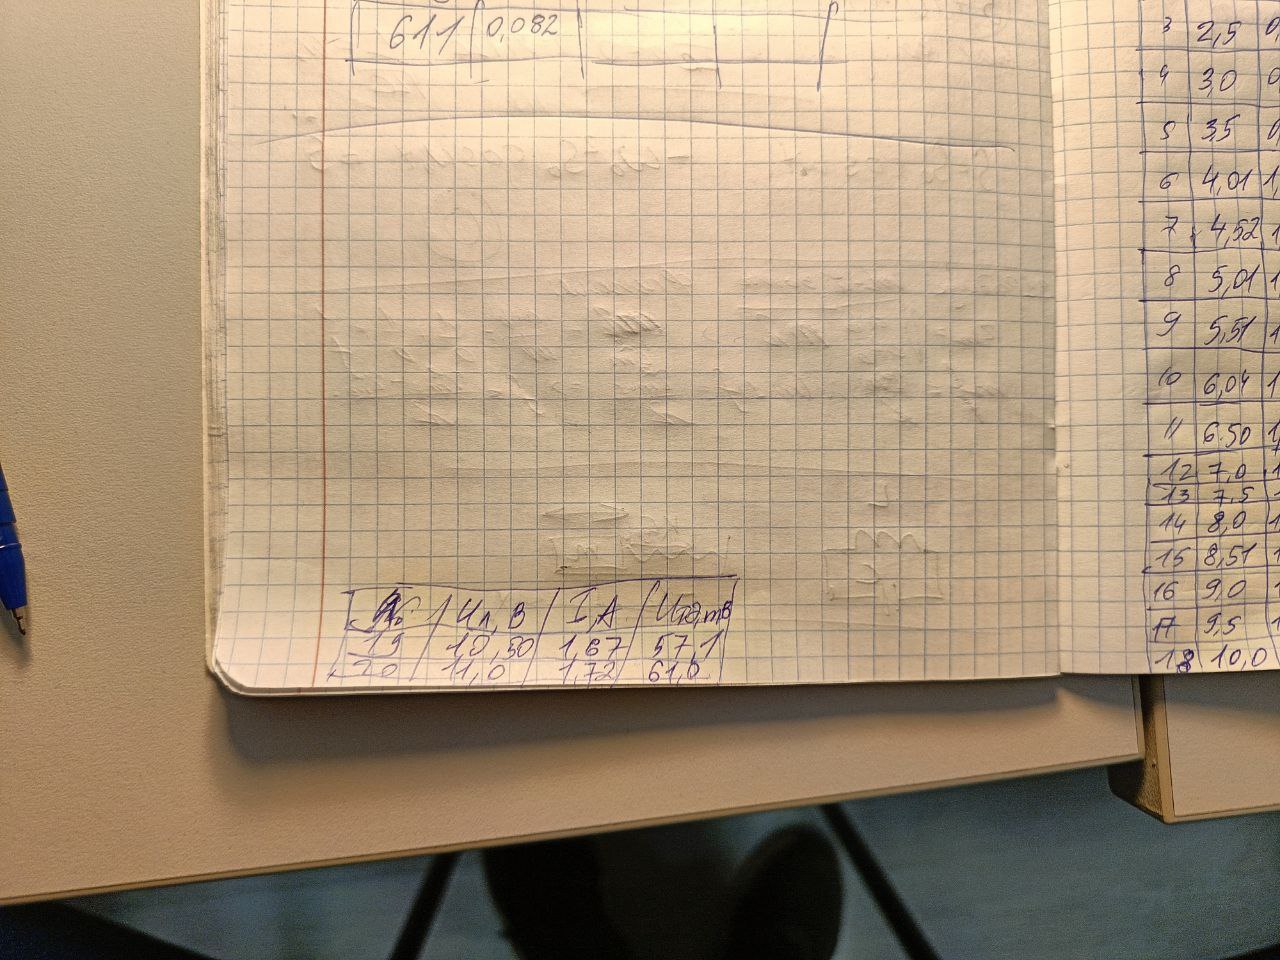 611 0,082
№ Uл, В I, А Uтэ, mВ
19 10,50 1,67 57,1
20 11,0 1,72 61,0
3 2,5 0,
4 3,0 0,
5 3,5 0,
6 4,01 1,
7 4,52 1
8 5,01 1
9 5,51 1
10 6,04 1
11 6.50 1
12 7,0 1
13 7,5
14 8,0 1
15 8,51 1
16 9,0 1
17 9,5 1
18 10,0